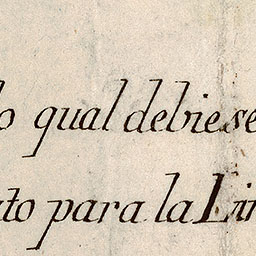 lo qual debiese
to para la Lin